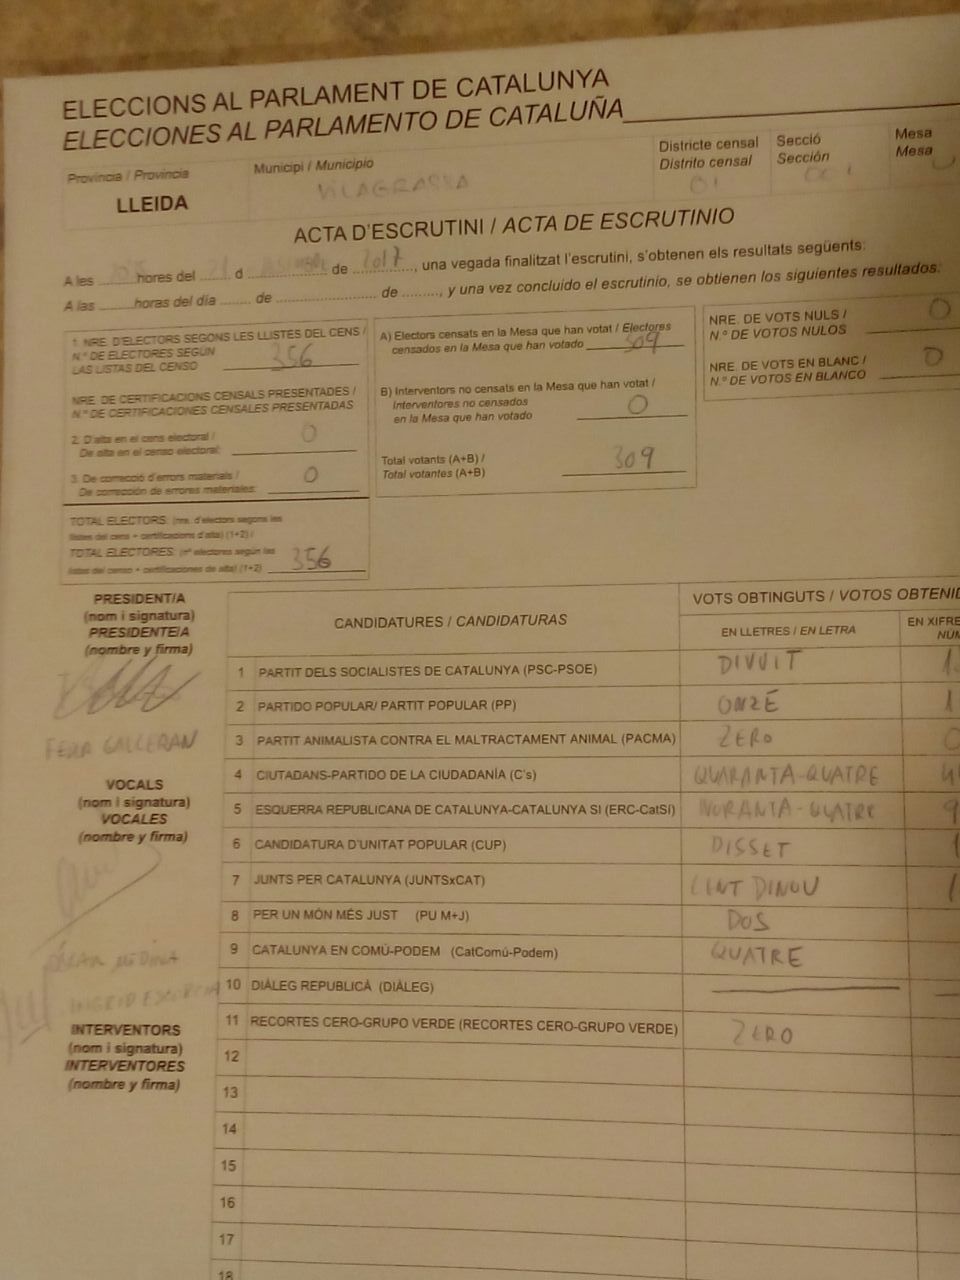 ELECCIONS AL PARLAMENT DE CATALUNYA
ELECCIONES AL PARLAMENTO DE CATALUÑA
Província / Provincia
LLEIDA
Municipi / Municipio
VILAGRASSA
Districte censal
Distrito censal
01
Secció
Sección
001
Mesa
Mesa
ACTA D'ESCRUTINI / ACTA DE ESCRUTINIO
A les ........ hores del 21 d ........ de 2017, una vegada finalitzat l'escrutini, s'obtenen els resultats següents:
A las ........ horas del día ....... de ........................ de ........, y una vez concluido el escrutinio, se obtienen los siguientes resultados:
1. NRE. D'ELECTORS SEGONS LES LLISTES DEL CENS /
N.º DE ELECTORES SEGÚN
LAS LISTAS DEL CENSO 356
NRE. DE CERTIFICACIONS CENSALS PRESENTADES /
N.º DE CERTIFICACIONES CENSALES PRESENTADAS
2. D'alta en el cens electoral /
De alta en el censo electoral: 0
3. De correcció d'errors materials /
De corrección de errores materiales: 0
TOTAL ELECTORS: (nre. d'electors segons les
llistes del cens + certificacions d'alta) (1+2) /
TOTAL ELECTORES: (nº electores según las
listas del censo + certificaciones de alta) (1+2) 356
A) Electors censats en la Mesa que han votat / Electores
censados en la Mesa que han votado 309
B) Interventors no censats en la Mesa que han votat /
Interventores no censados
en la Mesa que han votado 0
Total votants (A+B) /
Total votantes (A+B) 309
NRE. DE VOTS NULS /
N.º DE VOTOS NULOS 0
NRE. DE VOTS EN BLANC /
N.º DE VOTOS EN BLANCO 0
PRESIDENT/A
(nom i signatura)
PRESIDENTE/A
(nombre y firma)
GALCERAN
VOCALS
(nom i signatura)
VOCALES
(nombre y firma)
MEDINA
INGRID
INTERVENTORS
(nom i signatura)
INTERVENTORES
(nombre y firma)
CANDIDATURES / CANDIDATURAS
VOTS OBTINGUTS / VOTOS OBTENID
EN LLETRES / EN LETRA
EN XIFRE
NÚM
1 PARTIT DELS SOCIALISTES DE CATALUNYA (PSC-PSOE) DIVUIT 1
2 PARTIDO POPULAR/ PARTIT POPULAR (PP) ONZE 1
3 PARTIT ANIMALISTA CONTRA EL MALTRACTAMENT ANIMAL (PACMA) ZERO 0
4 CIUTADANS-PARTIDO DE LA CIUDADANÍA (C's) QUARANTA-QUATRE 4
5 ESQUERRA REPUBLICANA DE CATALUNYA-CATALUNYA SÍ (ERC-CatSí) NORANTA-QUATRE 9
6 CANDIDATURA D'UNITAT POPULAR (CUP) DISSET 1
7 JUNTS PER CATALUNYA (JUNTSxCAT) CENT DINOU 1
8 PER UN MÓN MÉS JUST (PU M+J) DOS
9 CATALUNYA EN COMÚ-PODEM (CatComú-Podem) QUATRE
10 DIÀLEG REPUBLICÀ (DIÀLEG)
11 RECORTES CERO-GRUPO VERDE (RECORTES CERO-GRUPO VERDE) ZERO
12
13
14
15
16
17
18